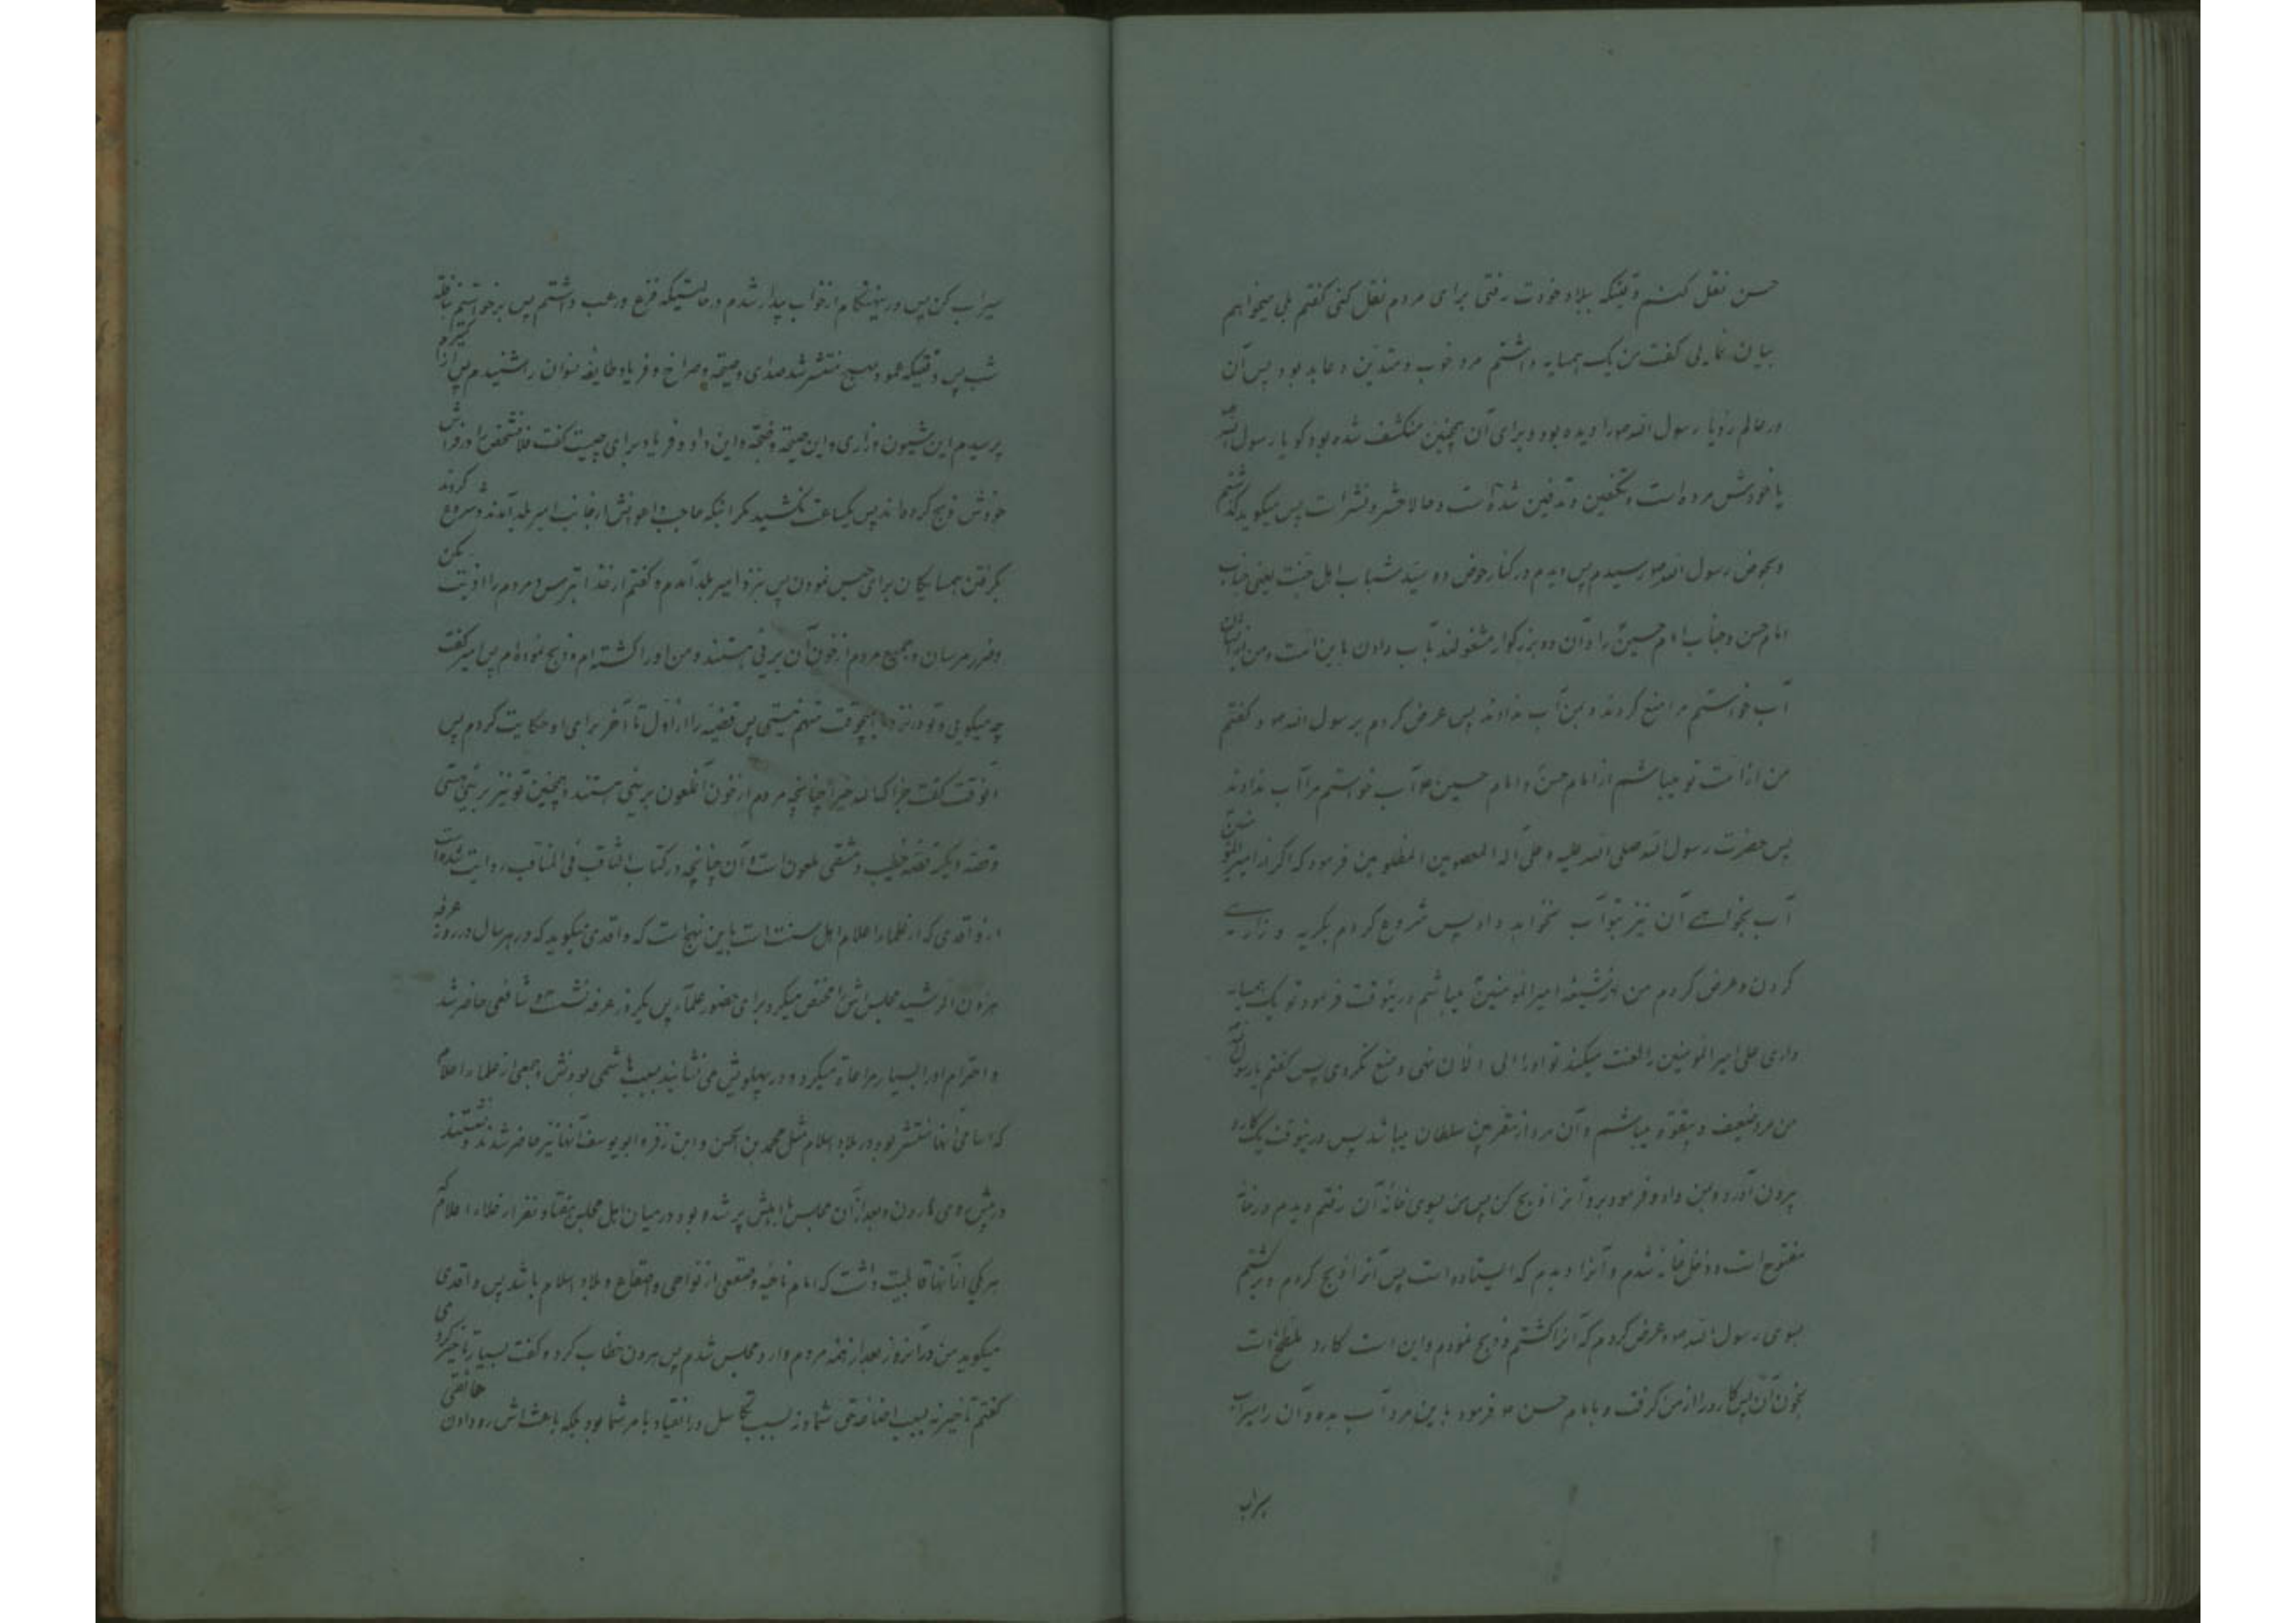 حسن نقل کنم وقتیکه ببلاد خودت رفتی برای مردم نقل کنی گفتم بلی میخواهم
بیان نمایی گفت من یک همسایه داشتم مرد خوب و متدین و عابد بود پس آن
در عالم رؤیا رسول الله ص را دیده بود و برای آن همچنین منکشف شده بود گویا رسول الله
یا خودش مرده است و تکفین و تدفین شده است و حالا حشر و نشر است پس میگوید گذشتم
و بحوض رسول الله ص رسیدم پس دیدم در کنار حوض دو سید شباب اهل جنت یعنی جناب
امام حسن و جناب امام حسین را و آن دو بزرگوار مشغولند بآب دادن باین امت و من از ایشان
آب خواستم مرا منع کردند و بمن آب ندادند پس عرض کردم برسول الله ص و گفتم
من از امت تو میباشم از امام حسن و امام حسین ع آب خواستم مرا آب ندادند
پس حضرت رسول الله صلی الله علیه و علی آله المعصومین المظلومین فرمود که اگر از امیر المؤمنین
آب بخواهی آن نیز بتو آب نخواهد داد پس شروع کردم بگریه و زاری
کردن و عرض کردم من از شیعه امیر المؤمنین میباشم درینوقت فرمود تو یک همسایه
داری علی امیر المؤمنین را لعنت میکند تو او را الی الآن نهی و منع نکردی پس گفتم یا رسول الله
من مرد ضعیف و بیقوه میباشم و آن مرد از مقربین سلطان میباشد پس درینوقت یک کارد
بیرون آورد و بمن داد و فرمود برو آنرا ذبح کن پس من بسوی خانه آن رفتم دیدم در خانه
مفتوح است و داخل خانه شدم و آنرا دیدم که ایستاده است پس آنرا ذبح کردم و برگشتم
بسوی رسول الله ص و عرض کردم که آنرا کشتم و ذبح نمودم و این است کارد ملطخ است
بخون آن پس کارد را از من گرفت و بامام حسن ع فرمود باین مرد آب بده و آن را سیراب
سیراب
سیراب کن پس درینهنگام از خواب بیدار شدم در حالتیکه فزع و رعب داشتم پس برخواستم نافله
شب پس وقتیکه عمود صبح منتشر شد صدای و صیحه و صراخ و فریاد طایفه نسوان را شنیدم پس از کنیزم
پرسیدم این شیون و زاری و این صیحه و ضجه و این داد و فریاد برای چیست گفت فلانشخص را در فراش
خودش ذبح کرده اند پس یکساعت نکشید مگر اینکه حاجب و اعوانش از جانب امیر بلد آمدند و شروع کردند
بگرفتن همسایگان برای حبس نمودن پس بنزد امیر بلد آمدم و گفتم از خدا بترس و مردم را اذیت مکن
و ضرر مرسان و جمیع مردم از خون آن بری هستند و من او را کشته ام و ذبح نموده ام پس امیر گفت
چه میگویی و تو در نزد ما هیچوقت متهم نیستی پس قضیه را از اول تا آخر برای او حکایت کردم پس
آنوقت گفت جزاک الله خیراً چنانچه مردم از خون آنملعون بریئی هستند همچنین تو نیز بریئی هستی
و قصه دیگر قصه خطیب دمشقی ملعون است و آن چنانچه در کتاب الثاقب فی المناقب روایت شده است
از واقدی که از علماء اعلام اهل سنت است باین نهج است که واقدی میگوید که در هر سال در روز عرفه
هرون الرشید مجلس اش را مختص میکرد برای حضور علماء پس یکروز عرفه نشست و شافعی حاضر شد
و احترام او را بسیار مراعاة میکرد و در پهلویش می نشانید بسبب هاشمی بودنش و جمعی از علماء اعلام
که اسامی آنها منتشر بود در بلاد اسلام مثل محمد بن الحسن و ابن زفر و ابو یوسف آنها نیز حاضر شدند و نشستند
در پیش روی هارون و بعد از آن مجلس باهلش پر شده بود و در میان اهل مجلس هفتاد نفر از علماء اعلام که
هر یکی از آنها قابلیت داشت که امام ناحیه و صقعی از نواحی و اصقاع و بلاد اسلام باشد پس واقدی
میگوید من در آنروز بعد از همه مردم وارد مجلس شدم پس هرون خطاب کرد و گفت بسیار تأخیر کردی
گفتم تأخیر نه بسبب اضاعه حق شما و نه بسبب تکاسل در انقیاد بامر شما بود بلکه باعث اش رو دادن عائقی